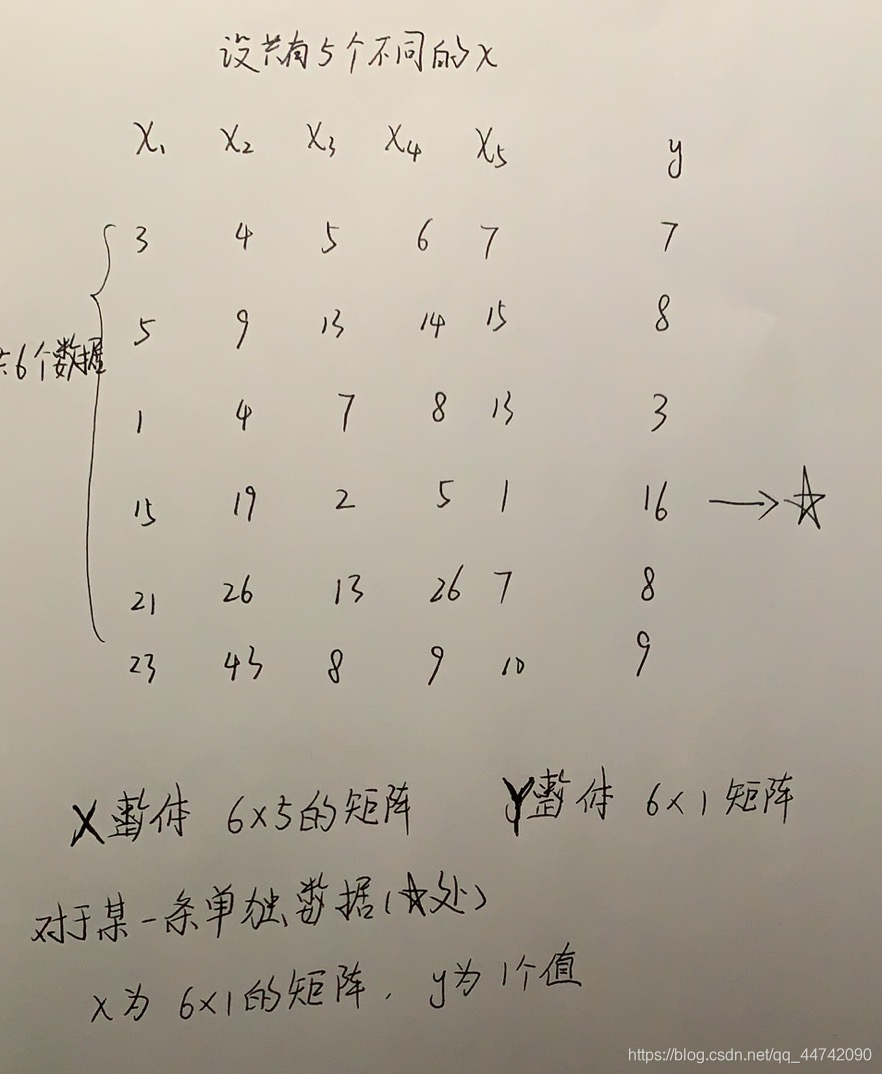 设共有5个不同的x
x₁ x₂ x₃ x₄ x₅ y
3 4 5 6 7 7
5 9 13 14 15 8
共6个数据
1 4 7 8 13 3
15 19 2 5 1 16 → ☆
21 26 13 26 7 8
23 43 8 9 10 9
X整体 6×5的矩阵 Y整体 6×1矩阵
对于某一条单独数据(☆处)
x为 6×1的矩阵, y为1个值
https://blog.csdn.net/qq_44742090